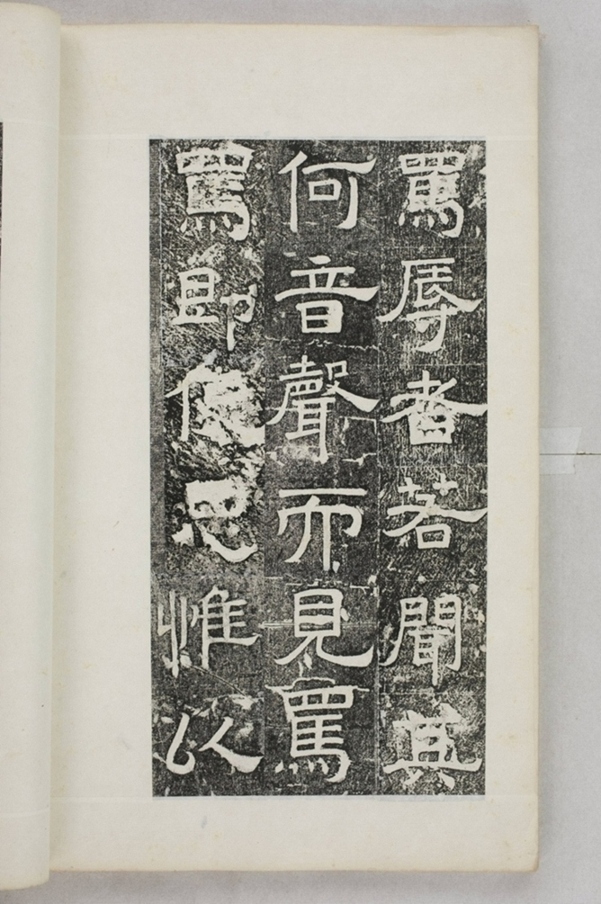 罵辱者若聞其
何音聲而見罵
罵即思惟以